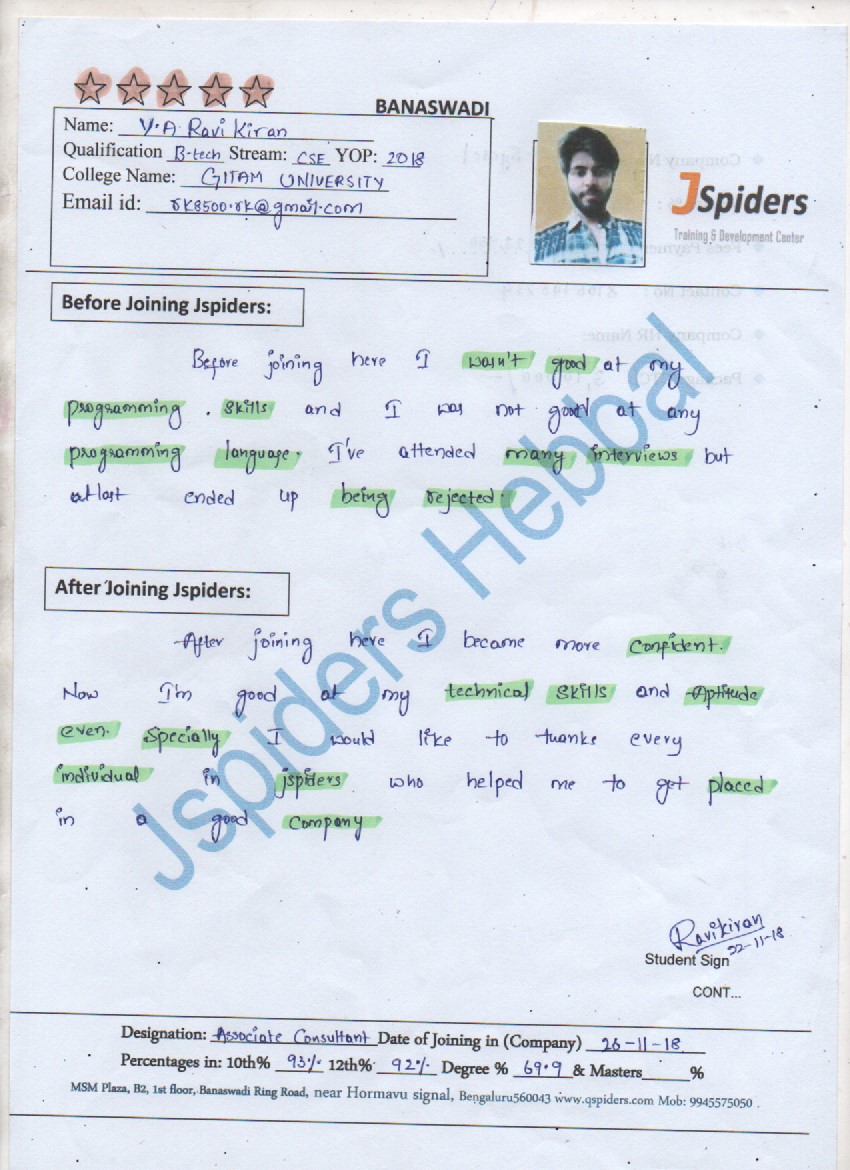 BANASWADI
Name: Y.A. Ravi Kiran
Qualification B-tech Stream: CSE YOP: 2018
College Name: GITAM UNIVERSITY
Email id: rk8500.rk@gmail.com
JSpiders
Training & Development Center
Before Joining Jspiders:
Before joining here I wasn't good at my
programming . skills and I was not good at any
programming language. I've attended many interviews but
atlast ended up being rejected.
After Joining Jspiders:
After joining here I became more confident.
Now I'm good at my technical skills and Aptitude
even. Specially I would like to thanks every
individual in jspiders who helped me to get placed
in a good company
Jspiders Hebbal
Ravikiran
22-11-18
Student Sign
CONT...
Designation: Associate Consultant Date of Joining in (Company) 26-11-18
Percentages in: 10th% 93% 12th% 92% Degree % 69.9 & Masters_____%
MSM Plaza, B2, 1st floor, Banaswadi Ring Road, near Hormavu signal, Bengaluru560043 www.qspiders.com Mob: 9945575050 .